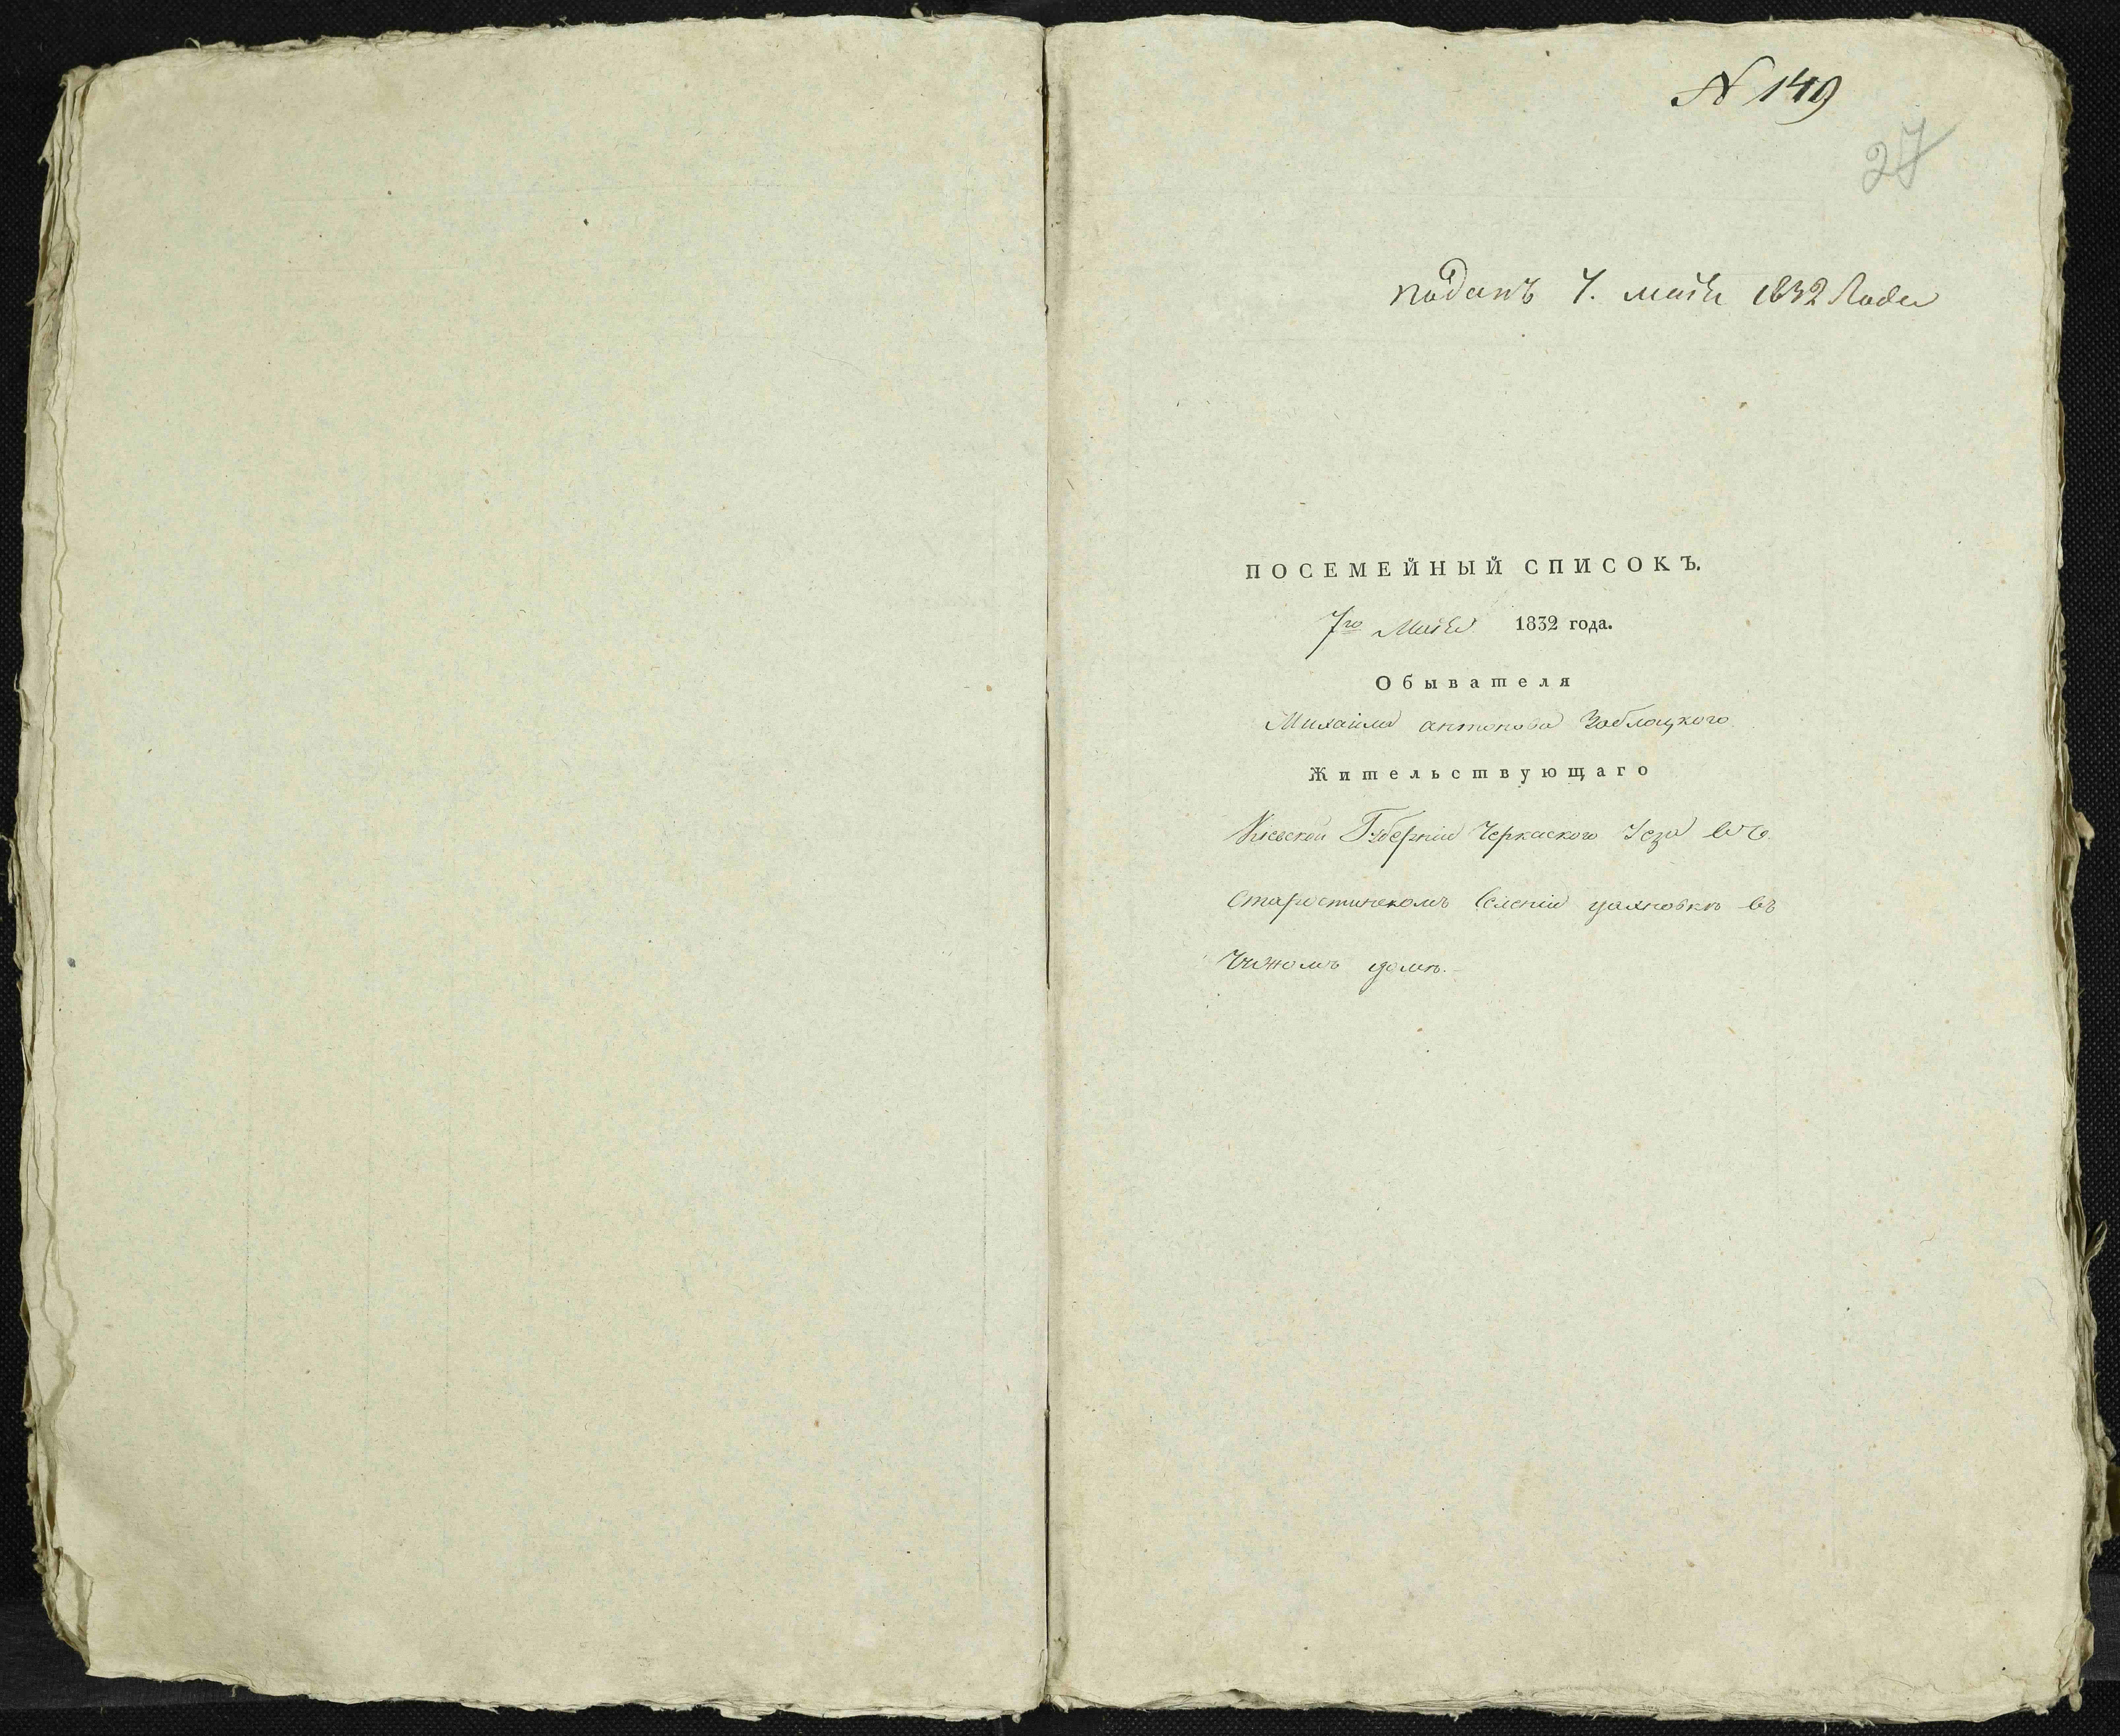 N 149
27
поданъ 7. маія 1832 Года
ПОСЕМЕЙНЫЙ СПИСОКЪ.
7го Маія 1832 года.
Обывателя
Михаила антонова Заблоцкого
Жительствующаго
Кіевской Губерніи Черкаского Уезда въ
старостинскомъ селеніи въ
Чужомъ доме.